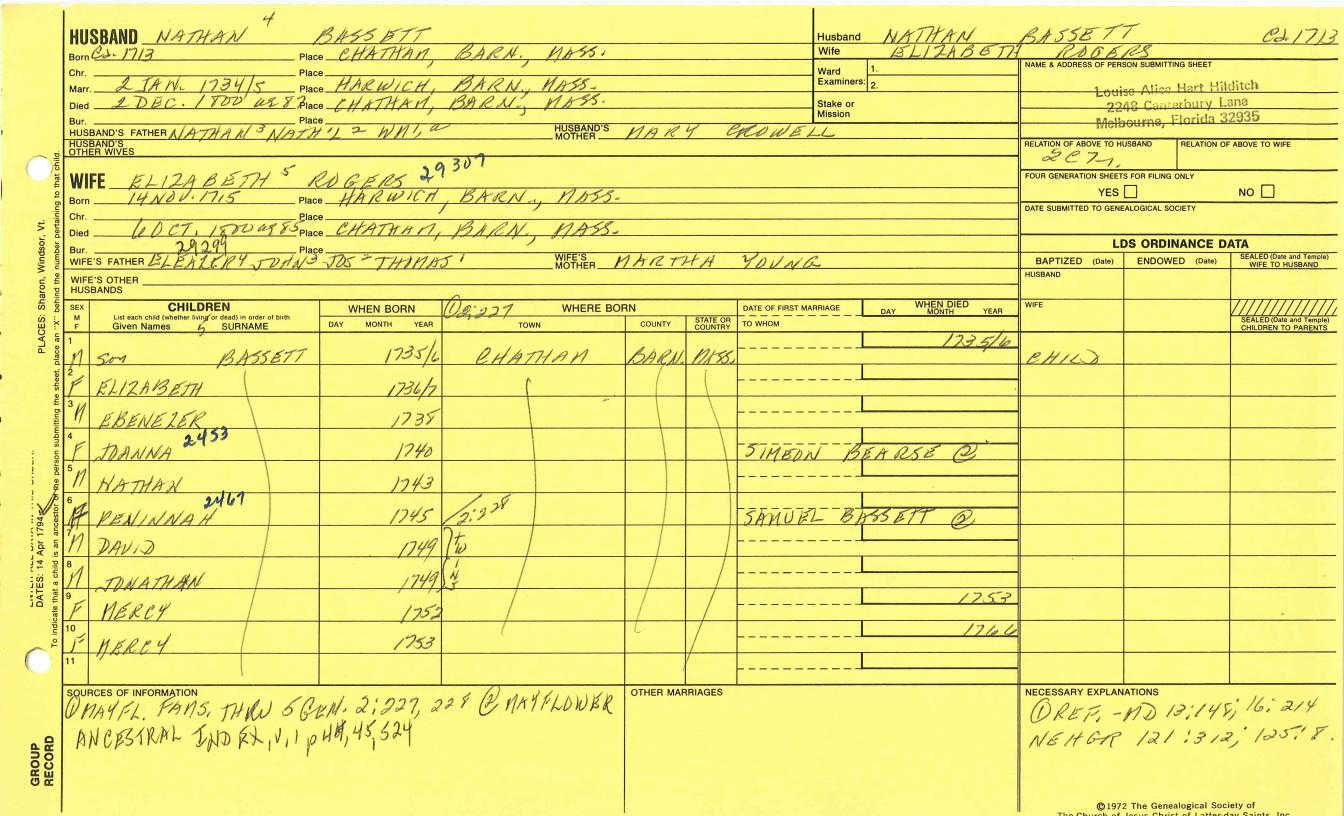 HUSBAND NATHAN 4 BASSETT
Born Ca. 1713 Place CHATHAM, BARN., MASS.
Chr. Place
Marr. 2 JAN. 1734/5 Place HARWICH, BARN., MASS.
Died 2 DEC. 1800 ae 87 Place CHATHAM, BARN., MASS.
Bur. Place
HUSBAND'S FATHER NATHAN 3 NATH'L 2 WM 1, a HUSBAND'S MOTHER MARY CROWELL
HUSBAND'S OTHER WIVES
WIFE ELIZABETH 5 ROGERS 29307
Born 14 NOV. 1715 Place HARWICH, BARN., MASS.
Chr. Place
Died 6 OCT. 1800 ae 85 Place CHATHAM, BARN., MASS.
Bur. 29299 Place
WIFE'S FATHER ELEAZER 4 JOHN 3 JOS 2 THOMAS 1 WIFE'S MOTHER MARTHA YOUNG
WIFE'S OTHER HUSBANDS
Husband NATHAN BASSETT Ca 1713
Wife ELIZABETH ROGERS
Ward Examiners: 1.
2.
Stake or Mission
NAME & ADDRESS OF PERSON SUBMITTING SHEET
Louise Alice Hart Hilditch
2248 Canterbury Lane
Melbourne, Florida 32935
RELATION OF ABOVE TO HUSBAND RELATION OF ABOVE TO WIFE
FOUR GENERATION SHEETS FOR FILING ONLY
YES NO
DATE SUBMITTED TO GENEALOGICAL SOCIETY
LDS ORDINANCE DATA
BAPTIZED (Date) ENDOWED (Date) SEALED (Date and Temple) WIFE TO HUSBAND
HUSBAND
WIFE
SEALED (Date and Temple) CHILDREN TO PARENTS
SEX M F
CHILDREN
List each child (whether living or dead) in order of birth
Given Names 5 SURNAME
WHEN BORN
DAY MONTH YEAR
① 2:227 WHERE BORN
TOWN COUNTY STATE OR COUNTRY
DATE OF FIRST MARRIAGE
TO WHOM
WHEN DIED
DAY MONTH YEAR
1 M son BASSETT 1735/6 CHATHAM BARN. MASS. 1735/6 CHILD
2 F ELIZABETH 1736/7
3 M EBENEZER 1738
4 F JOANNA 2453 1740 SIMEON BEARSE ②
5 M NATHAN 1743
6 F PENINNAH 2467 1745 2:228 SAMUEL BASSETT ②
7 M DAVID 1749 TWINS
8 M JONATHAN 1749
9 F MERCY 1752 1753
10 F MERCY 1753 1766
11
SOURCES OF INFORMATION
① MAYFL. FAMS. THRU 5 GEN. 2:227, 228 ② MAYFLOWER
ANCESTRAL INDEX, V. 1 p 44, 45, 524
OTHER MARRIAGES
NECESSARY EXPLANATIONS
① REF. - MD 13:148; 16:214
NEHGR 121:312; 125:8.
©1972 The Genealogical Society of
The Church of Jesus Christ of Latter-day Saints, Inc.
PLACES: Sharon, Windsor, Vt.
DATES: 14 Apr 1794
To indicate that a child is an ancestor of the person submitting the sheet, place an "X" behind the number pertaining to that child.
GROUP RECORD